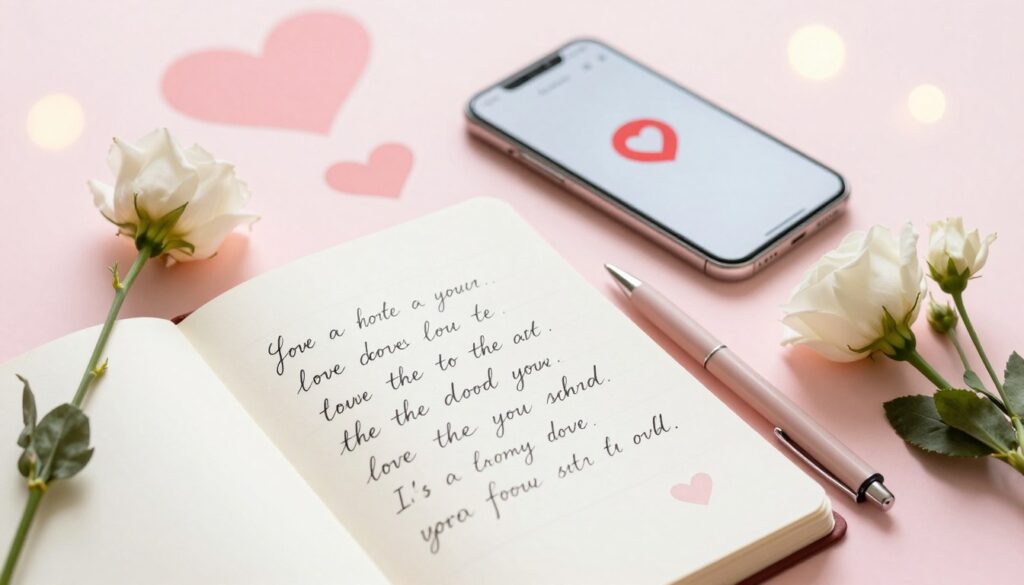 love a horte a your..
love doves lou te.
lowe the to the act.
the the dood youx.
love the you schrd.
I.'s a tromy dove.
yora foow sstr te ovld.